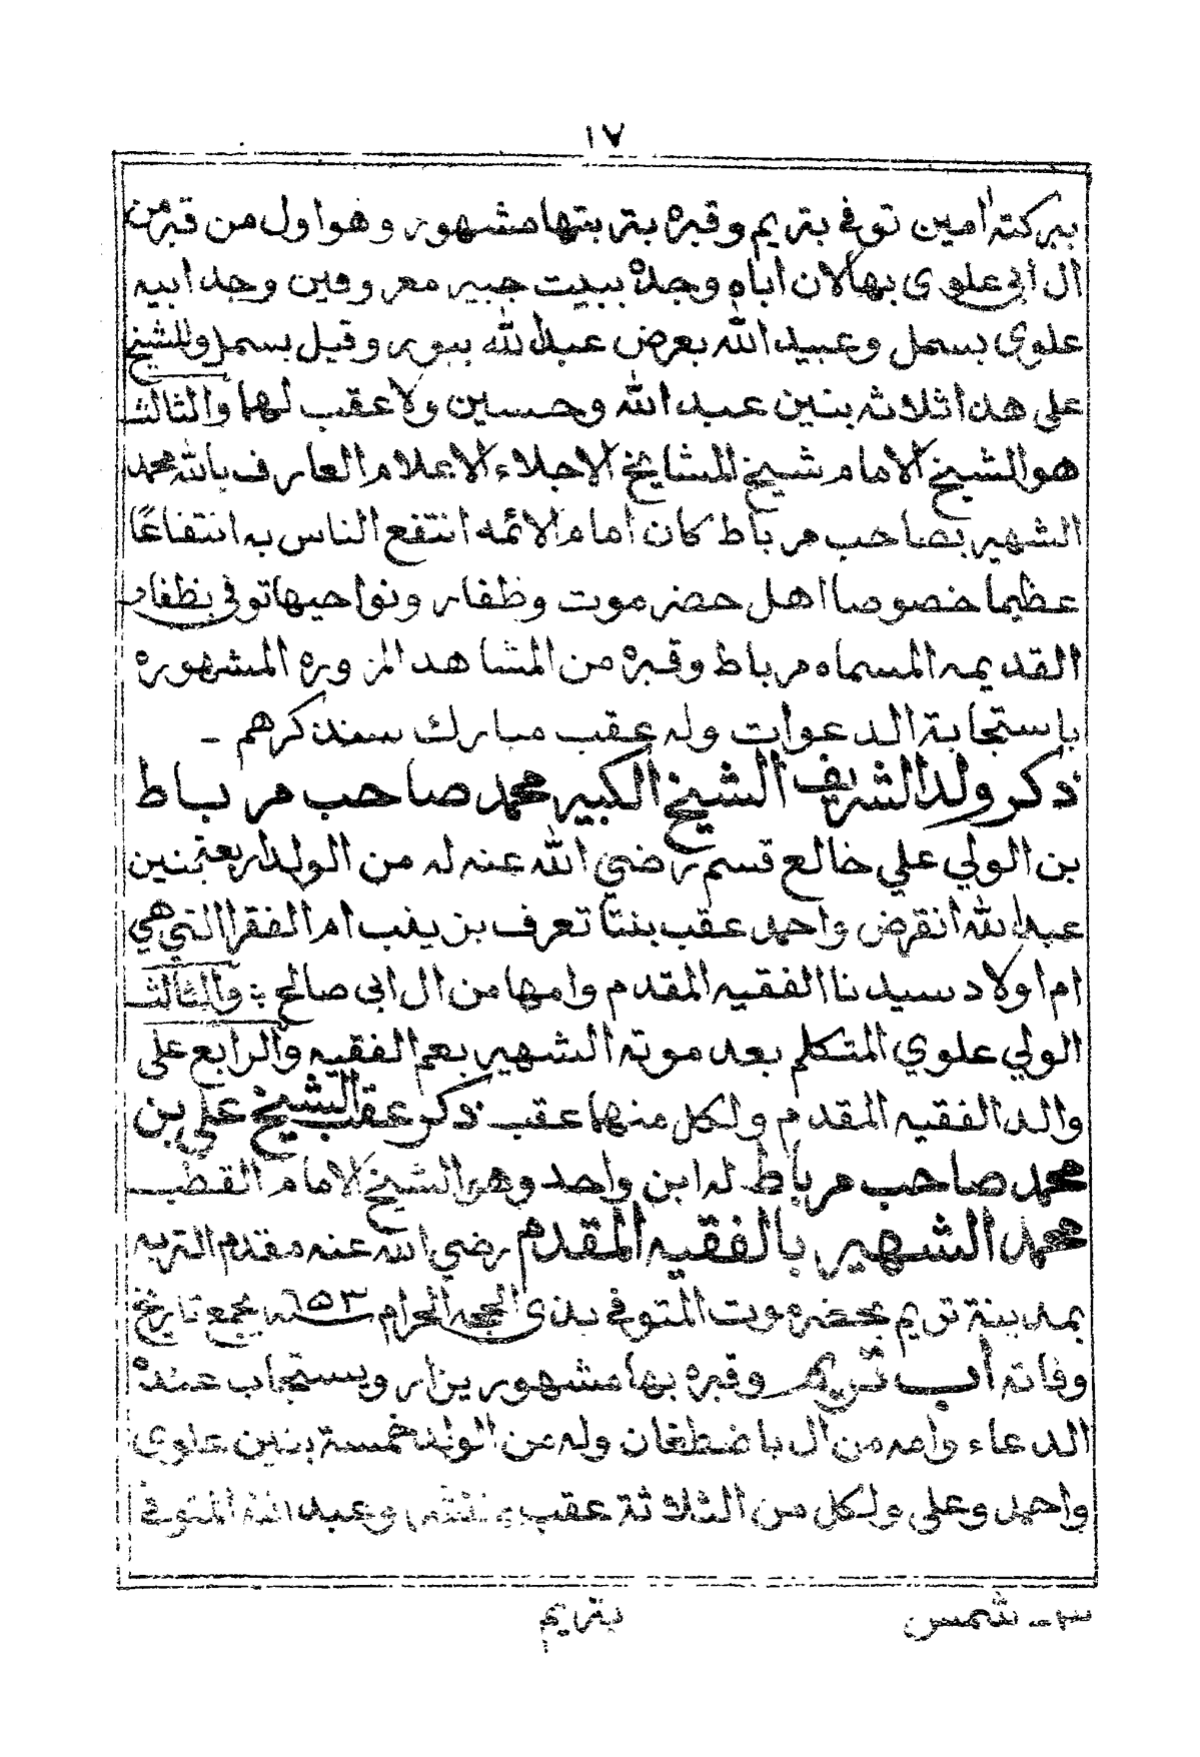 ١٧
ببركته امين توفي بتريم وقبره بتربتها مشهور وهو اول من قبر من
ال ابي علوي بها لان اباه وجده ببيت جبير معروفين وجد ابيه
علوي بسمل وعبيد الله بعرض عبد الله ببور وقيل بسمل وللشيخ
على هذا ثلاثه بنين عبد الله وحسين ولا عقب لهما والثالث
هو الشيخ الامام شيخ المشايخ الاجلاء الاعلام العارف بالله محمد
الشهير بصاحب مرباط كان امام الائمه انتفع الناس به انتفاعًا
عظيما خصوصا اهل حضرموت وظفار ونواحيها توفي بظفار
القديمه المسماه مرباط وقبره من المشاهد المزوره المشهوره
باستجابة الدعوات وله عقب مبارك سنذكرهم -
ذكر ولد الشريف الشيخ الكبير محمد صاحب مرباط
بن الولي علي خالع قسم رضي الله عنه له من الولد اربعة بنين
عبد الله انقرض واحمد عقب بنتا تعرف بزينب ام الفقرا التي هي
ام اولاد سيدنا الفقيه المقدم وامها من ال ابي صالح : والثالث
الولي علوي المتكلم بعد موته الشهير بعم الفقيه والرابع على
والد الفقيه المقدم ولكل منهما عقب ذكر عقب الشيخ علي بن
محمد صاحب مرباط له ابن واحد وهو الشيخ الامام القطب
محمد الشهير بالفقيه المقدم رضي الله عنه مقدم التربه
بمدينة تريم بحضرموت المتوفي بذي الحجه الحرام سنة ٦٥٣ يجمع تاريخ
وفاته أب تريم وقبره بها مشهور يزار ويستجاب عنده
الدعاء وامه من ال باضطفان وله من الولد خمسة بنين علوي
واحمد وعلي ولكل من الثلاثة عقب منتشر وعبد الله المتوفي
٣ - شمس
بتريم